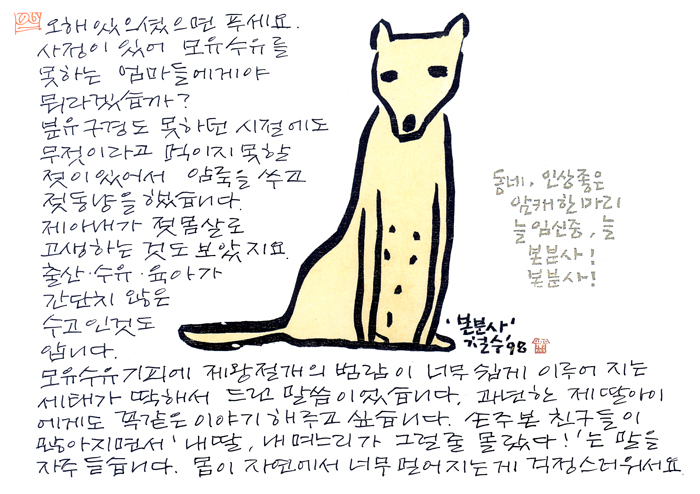 오해 있으셨으면 푸세요.
사정이 있어 모유수유를
못하는 엄마들에게야
뭐라겠습니까?
분유구경도 못하던 시절에도
무젖이라고 먹이지 못할
젖이 있어서 암죽을 쑤고
젖동냥을 했습니다.
제아내가 젖몸살로
고생하는 것도 보았지요.
출산·수유·육아가
간단치 않은
수고인것도
압니다.
모유수유기피에 제왕절개의 범람이 너무 쉽게 이루어 지는
세태가 딱해서 드린 말씀이었습니다. 과년한 제 딸아이
에게도 꼭같은 이야기 해주고 싶습니다. 손주본 친구들이
많아지면서 '내딸, 내며느리가 그럴줄 몰랐다!'는 말을
자주 듣습니다. 몸이 자연에서 너무 멀어지는게 걱정스러워서요
동네, 인상좋은
암캐한마리
늘 임신중, 늘
본분사!
본분사!
'본분사'
철수 '98